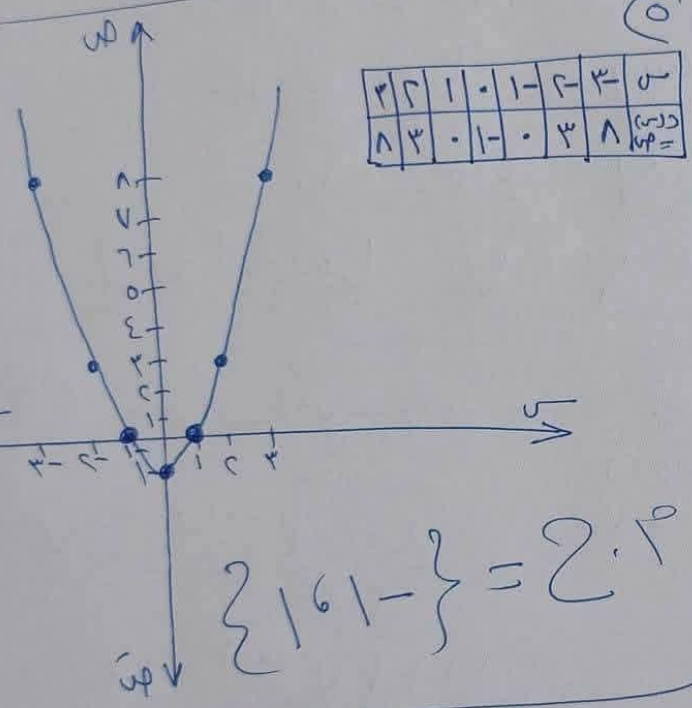 س ٣- ٢- ١- ٠ ١ ٢ ٣
٨ ٣ ٠ ١- ٠ ٣ ٨
ص
٨
٧
٦
٥
٤
٣
٢
١
س
٣- ٢- ١- ١ ٢ ٣
١-
صَ
م.ح = {-١ ، ١}